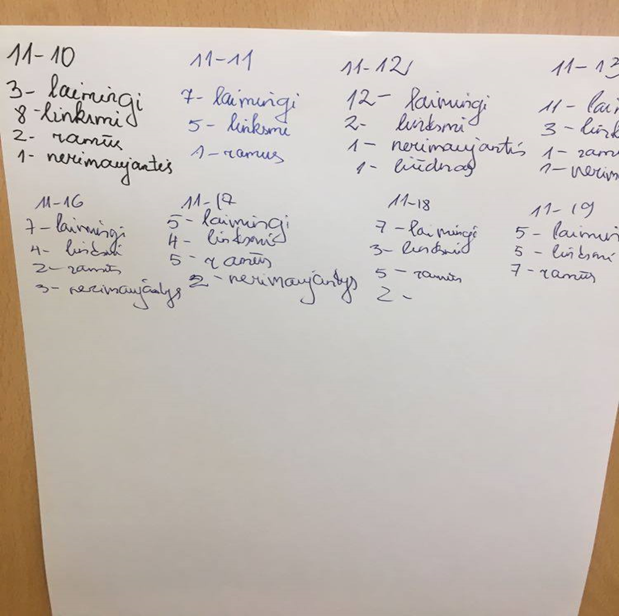 11-10
3- laimingi
8-linksmi
2- ramūs
1- nerimaujantis
11-11
7- laimingi
5- linksmi
1-ramus
11-12
12- laimingi
2- linksmi
1- nerimaujantis
1- liūdnas
11-13
11- lai
3- link
1- ramu
1- nerim
11-16
7-laimingi
4- linksmi
2-ramūs
3- nerimaujantys
11-17
5- laimingi
4- linksmi
5- ramūs
2- nerimaujantys
11-18
7-laimingi
3-linksmi
5 -ramūs
2 -
11-19
5- laimin
5 - linksmi
7-ramūs